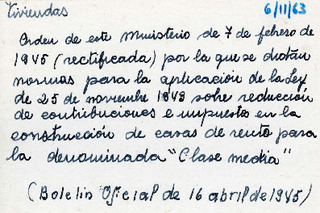 Viviendas
6/11/63
Orden de este Ministerio de 7 de febrero de
1945 (rectificada) por la que se dictan
normas para la aplicación de la Ley
de 25 de noviembre 1943 sobre reducción
de contribuciones e impuestos en la
construcción de casas de renta para
la denominada "Clase media"
(Boletín Oficial de 16 abril de 1945)